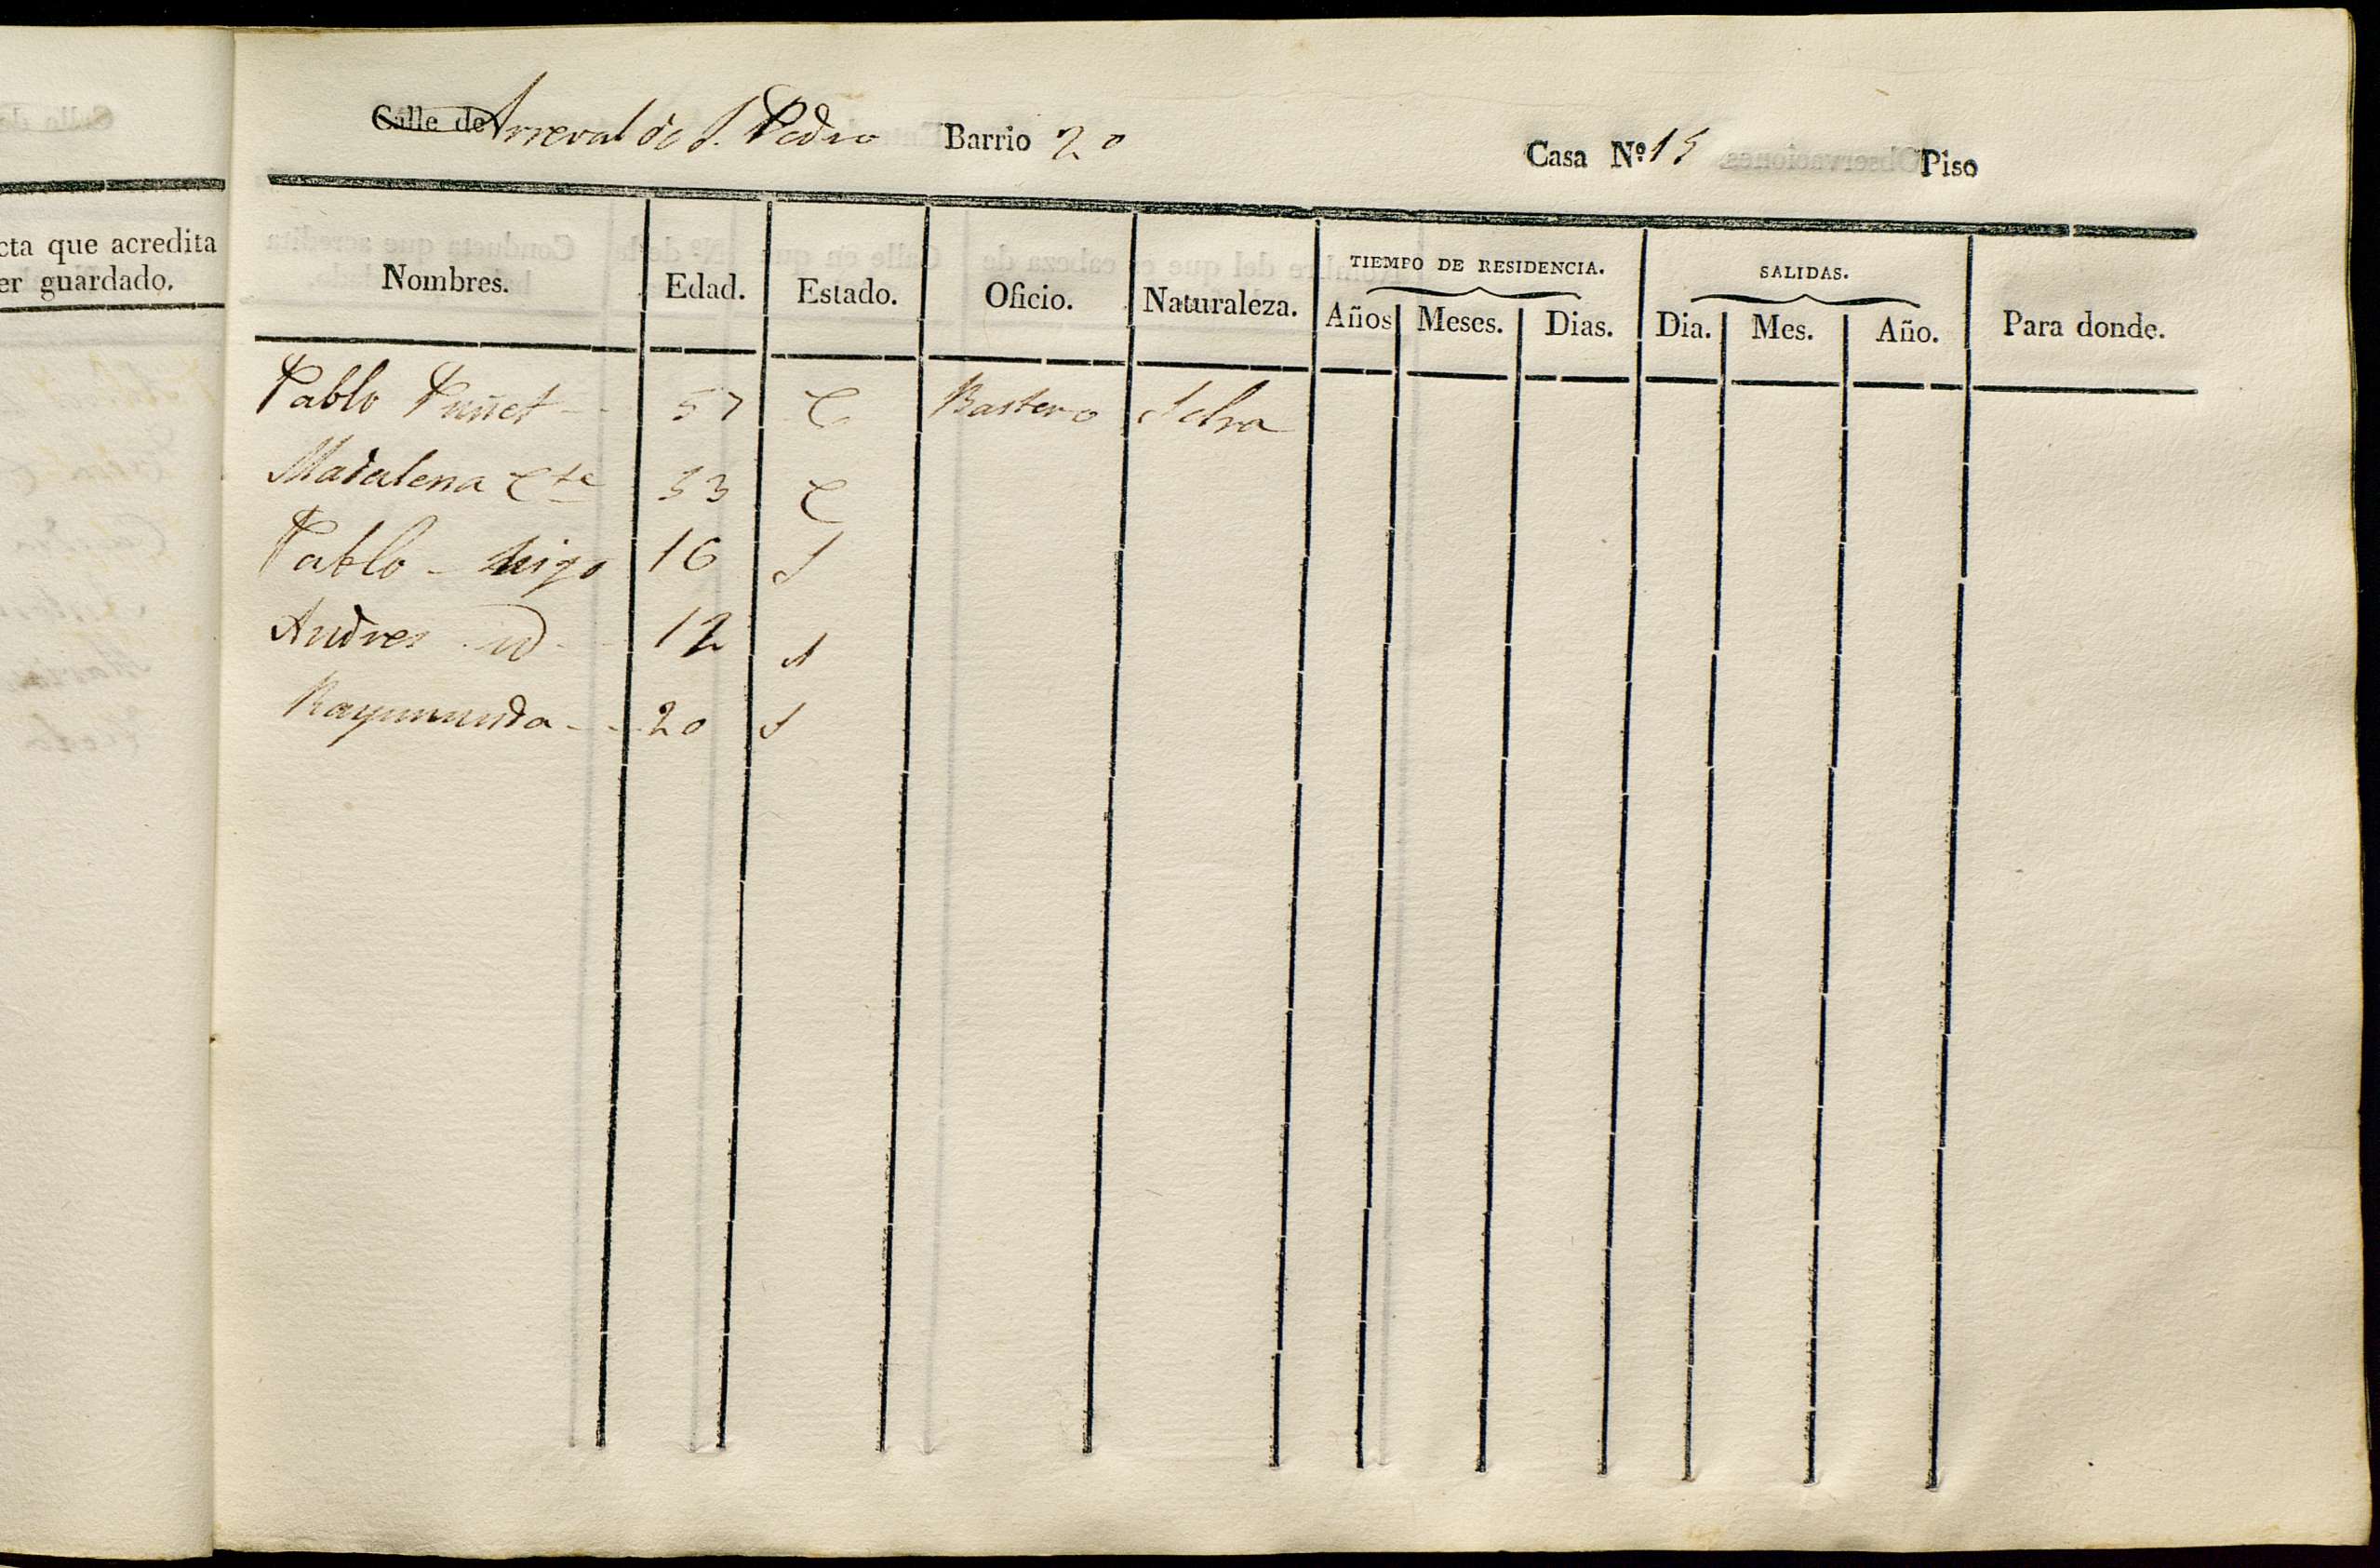 Calle de Arreval de S. Pedro Barrio 2º Casa N.º 15 Piso
cta que acredita
er guardado.
Nombres. Edad. Estado. Oficio. Naturaleza. TIEMPO DE RESIDENCIA. SALIDAS. Para donde.
Años Meses. Dias. Dia. Mes. Año.
Pablo Puñet 57 C Bastero Selva
Madalena Cte 53 C
Pablo - higo 16 S
Andres id 12 S
Raymunda 20 S